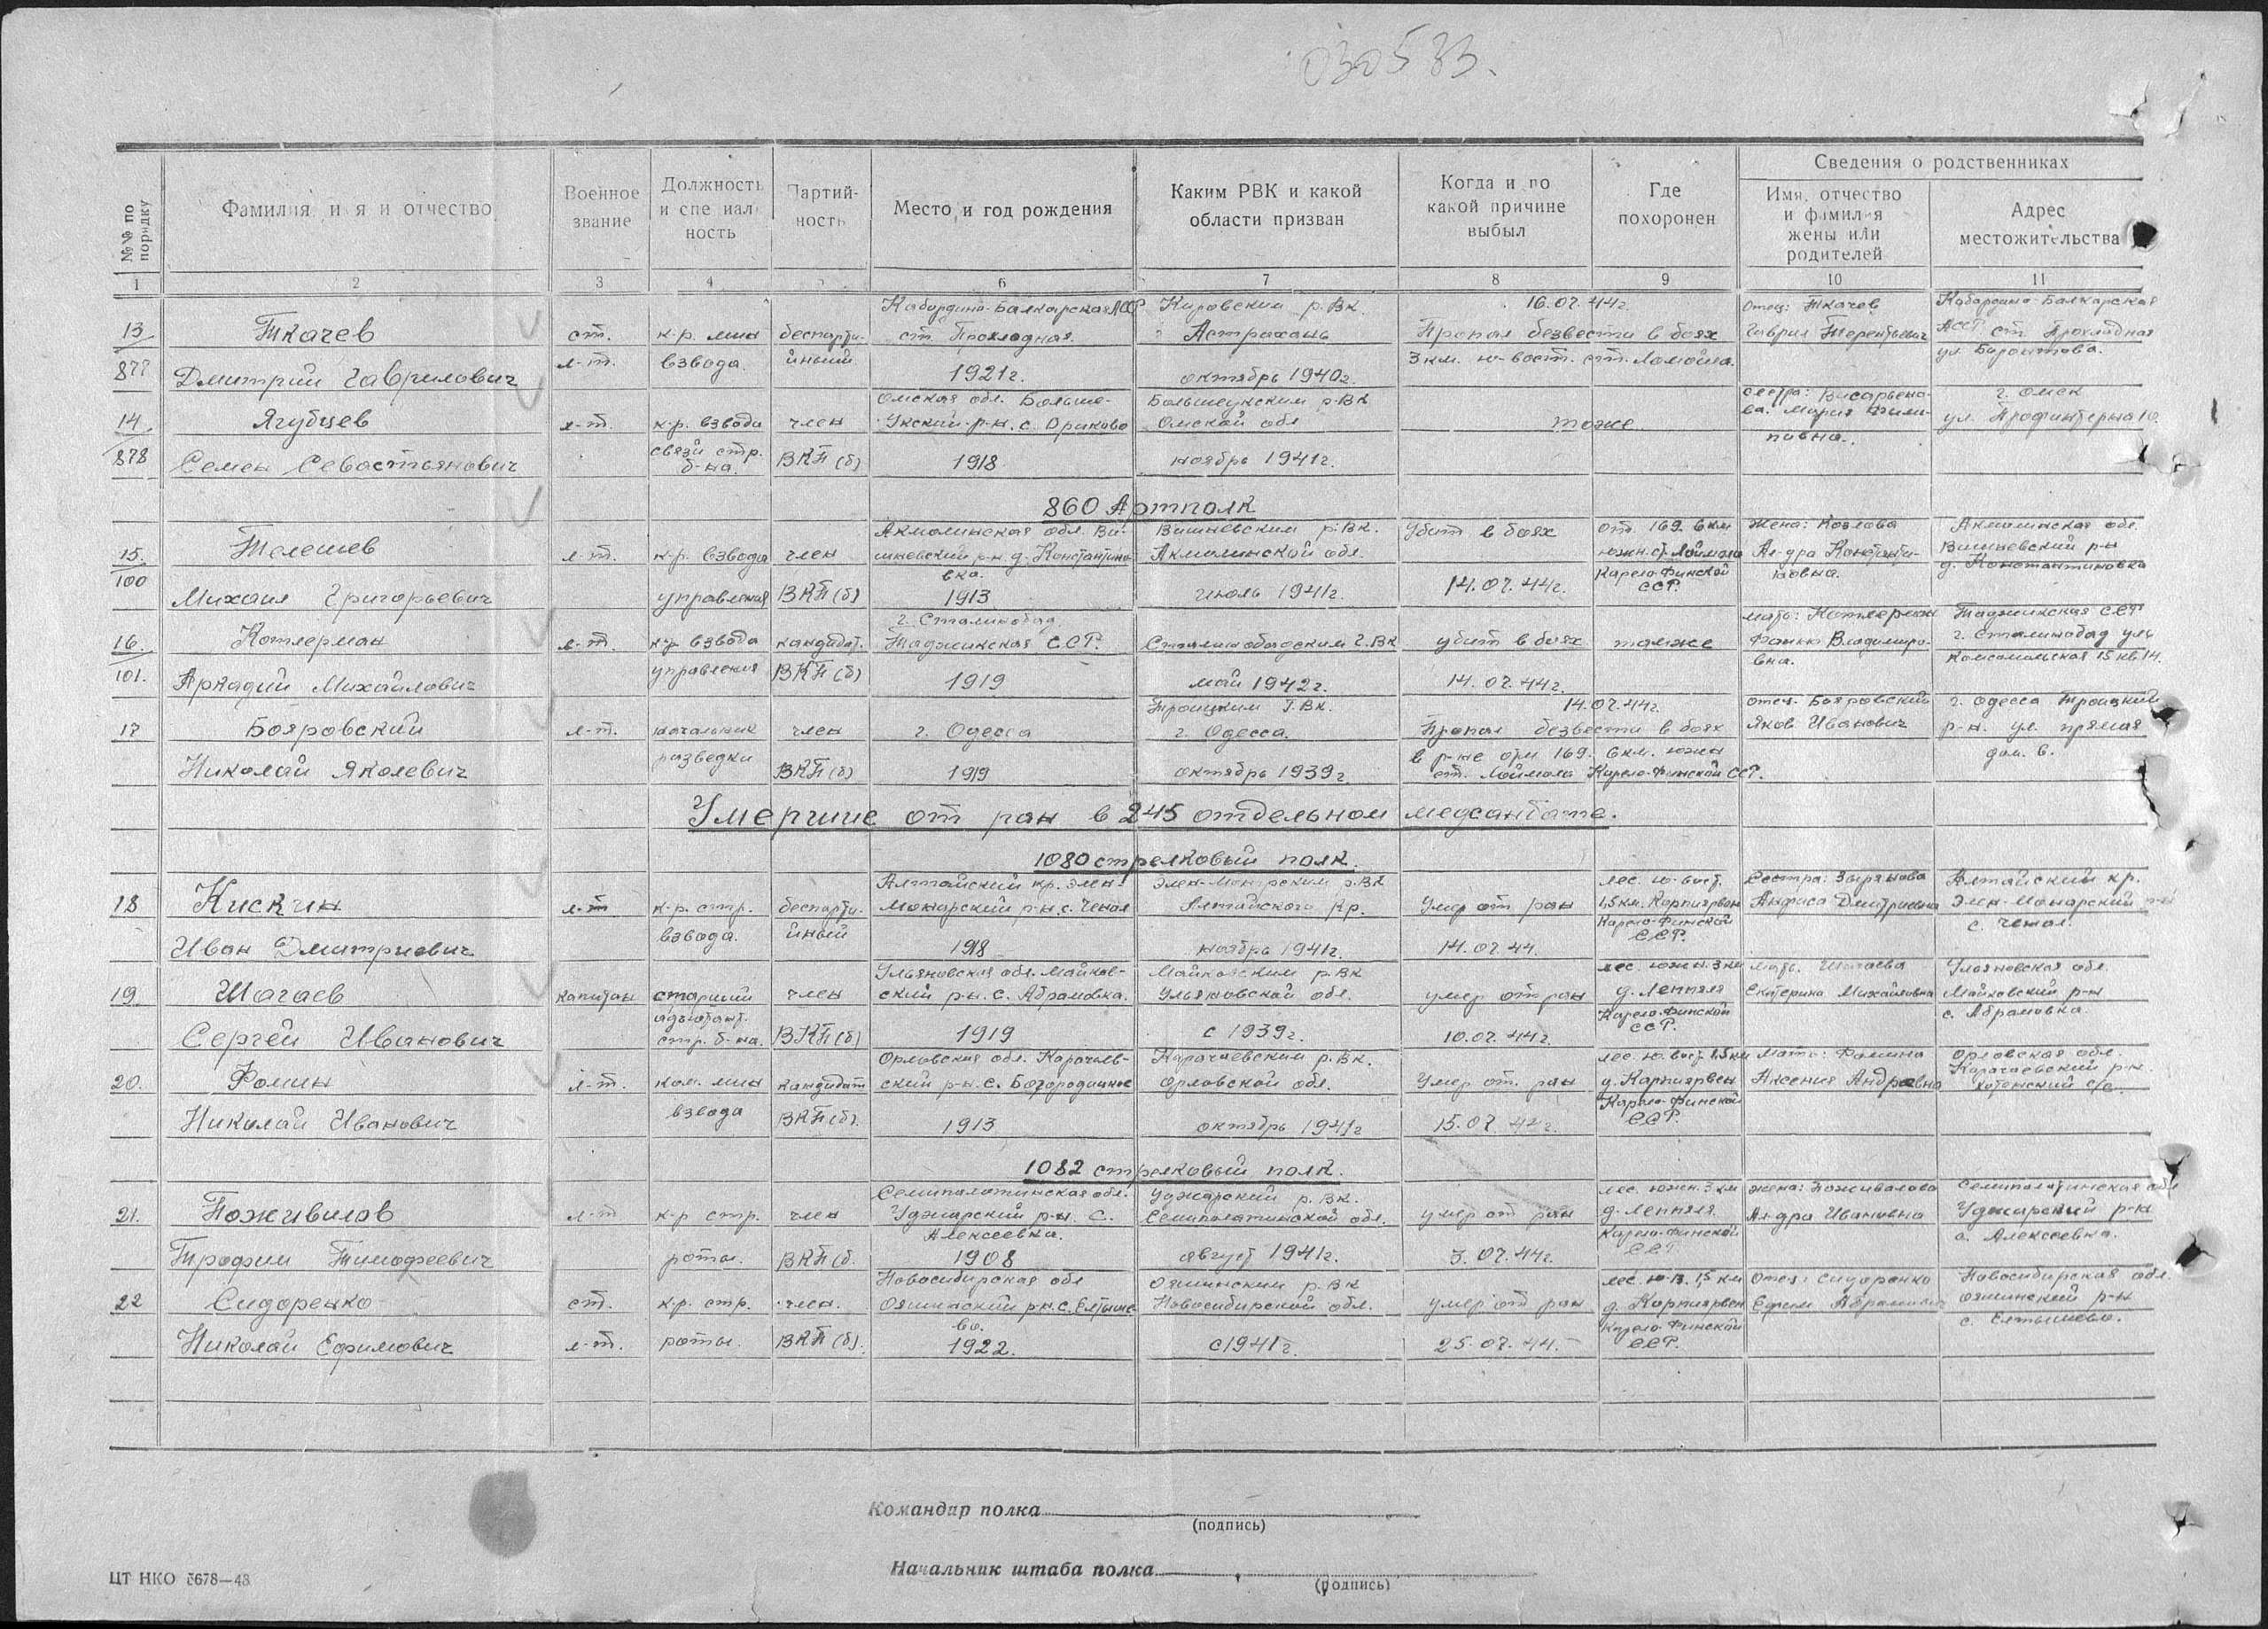 030533.
Сведения о родственниках
№№ по порядку
Фамилия, имя и отчество
Военное звание
Должность и специальность
Партийность
Место и год рождения
Каким РВК и какой области призван
Когда и по какой причине выбыл
Где похоронен
Имя, отчество и фамилия жены или родителей
Адрес местожительства
1 2 3 4 5 6 7 8 9 10 11
Кабардино-Балкарская АССР Кировским р.Вк. 16.07.44г. Отец: Ткачев Кабардино-Балкарская
13 Ткачев ст. к-р. мин беспарти- ст. Прохладная г. Астрахань Пропал безвести в боях Гаврил Терентьевич АССР ст. Прохладная
877 Дмитрий Гаврилович л-т. взвода. йный 1921г. октябрь 1940г. 3 км. ю-вост. ст. Лоймола. ул.
Омская обл. Больше- Большеукским р.Вк сестра: г. Омск
14. Ягубцев л-т. к-р. взвода член Укский р-н. с. Омской обл тоже Мария Фили- ул. Профинтерна 10.
878 Семен Севастьянович связи стр. б-на. ВКП(б) 1918 ноябрь 1941г. повна.
860 Артполк
Акмолинская обл. Ви- Вишневским р.Вк. Убит в боях отм. 169. 6км Жена: Козлова Акмолинская обл.
15. Телешев л-т. к-р. взвода член шневский р-н д. Константино- Акмолинской обл. южн. ст. Лоймола Ал-дра Константи- Вишневский р-н
100 Михаил Григорьевич управления ВКП(б) вка. 1913 июль 1941г. 14.07.44г. Карело-Финской ССР. новна. д. Константиновка
г. Сталинобад мать: Котлерман Таджикская ССР
16. Котлерман л-т. к-р взвода кандидат. Таджикская ССР. Сталинобадским Г.Вк убит в боях тамже Владимиро- г. Сталинобад ул.
101. Аркадий Михайлович управления ВКП(б) 1919 май 1942г. 14.07.44г. вна. Комсомольская 15 кв. 14.
Троицким Г.Вк. 14.07.44г. отец. Бояровский г. Одесса Троицкий
17 Бояровский л-т. начальник член г. Одесса г. Одесса. Пропал безвести в боях Яков Иванович р-н. ул. прямая
Николай Яколевич разведки ВКП(б) 1919 октябрь 1939г. в р-не отм 169. 6 км. южн дом. 6.
ст. Лоймола Карело-Финской ССР.
Умершие от ран в 245 отдельном медсанбате.
1080 стрелковый полк.
Алтайский кр. Элек- Элек-Монарским р.Вк лес. ю-вост. Сестра: Зырянова Алтайский кр.
18 Кискин л-т к-р. стр. беспарти- Монарский р-н. с. Чемал Алтайского Кр. Умер от ран 1,5 км. Карпиярвен Анфиса Дмитриевна Элек-Монарский р-н
Иван Дмитриевич взвода. йный 1918 ноябрь 1941г. 14.07.44. Карело-Финской ССР. с. Чемал.
Ульяновская обл. Майков- Майковским р.Вк лес. южн. 3 км мать. Шагаева Ульяновская обл.
19. Шагаев капитан старший член ский р-н. с. Абрамовка. Ульяновской обл. умер от ран д. Леппяля Екатерина Михайловна Майковский р-н
Сергей Иванович адъютант. стр. б-на. ВКП(б) 1919 с 1939г. 10.07.44г. Карело-Финской ССР. с. Абрамовка.
Орловская обл. Карачаев- Карачаевским р.Вк. лес. ю. вост. 1,5 км Мать: Фомина Орловская обл.
20. Фомин л-т. ком. мин кандидат ский р-н. с. Богородицкое Орловской обл. Умер от ран д. Карпиярвен Аксения Андреевна Карачаевский р-н.
Николай Иванович взвода ВКП(б). 1913 октябрь 1941г 15.07.44г. Карело-Финской ССР. с/с.
1082 стрелковый полк.
Семипалатинская обл. Уджарский р.Вк. лес. южн. 3 км жена: Поживалова Семипалатинская обл
21. Поживилов л-т к-р стр. член Уджарский р-н. с. Семипалатинской обл. умер от ран д. Леппяля Ал-дра Ивановна Уджарский р-н
Трофим Тимофеевич роты. ВКП(б. Алексеевка. 1908 август 1941г. 3.07.44г. Карело-Финской ССР. с. Алексеевка.
Новосибирская обл Ояшинским р.Вк лес. ю-в. 1,5 км Отец: Сидоренко Новосибирская обл.
22 Сидоренко ст. к-р. стр. член. Ояшинский р-н. с. Елтыше- Новосибирской обл. умер от ран д. Карпиярвен Ефим Абрамович Ояшинский р-н
Николай Ефимович л-т. роты. ВКП(б). во. 1922. с 1941г. 25.07.44. Карело-Финской ССР. с. Елтышево.
Командир полка
(подпись)
Начальник штаба полка
(подпись)
ЦТ НКО 5678—43